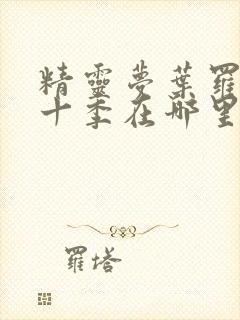 精靈夢葉羅
十季在哪里
羅塔